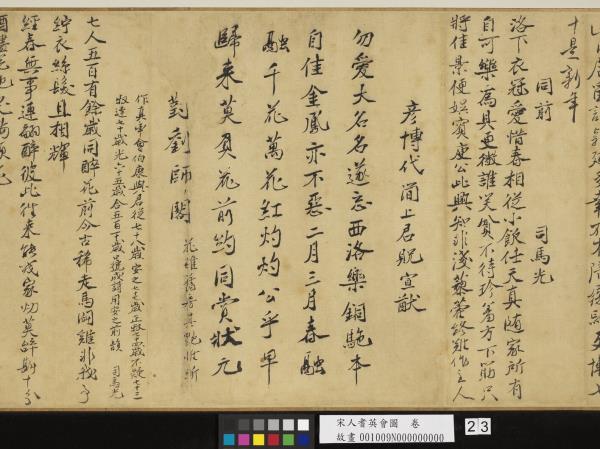 十是新年
同前
司馬光
洛下衣冠愛惜春相從小飲任天真随家所有
自可樂為具更微誰笑貧不待珍羞方下筯只
將佳景便娱賓庾公此興知非淺藜藿終難作主人
彦博代簡上君貺宣猷
勿愛大名名遂忘西洛樂銅駞本
自佳金鳳亦不惡二月三月春融
融千花萬花紅灼灼公乎早
歸來莫負花前約同賞狀元
對劉師閣
作真率會伯康與君從七十八歲安之七十七歲正叔七十四歲不疑七十三
叔達七十歲光六十五歲合五百一十五歲
用安之前韻
司馬光
七人五百有餘歲同醉花前今古稀走馬鬬雞非我事
紵衣絲髮且相輝
經春無事連翩醉彼此往來能幾家切莫辭斟十分
宋人耆英會圖 卷
故畫 001009N000000000
2 3